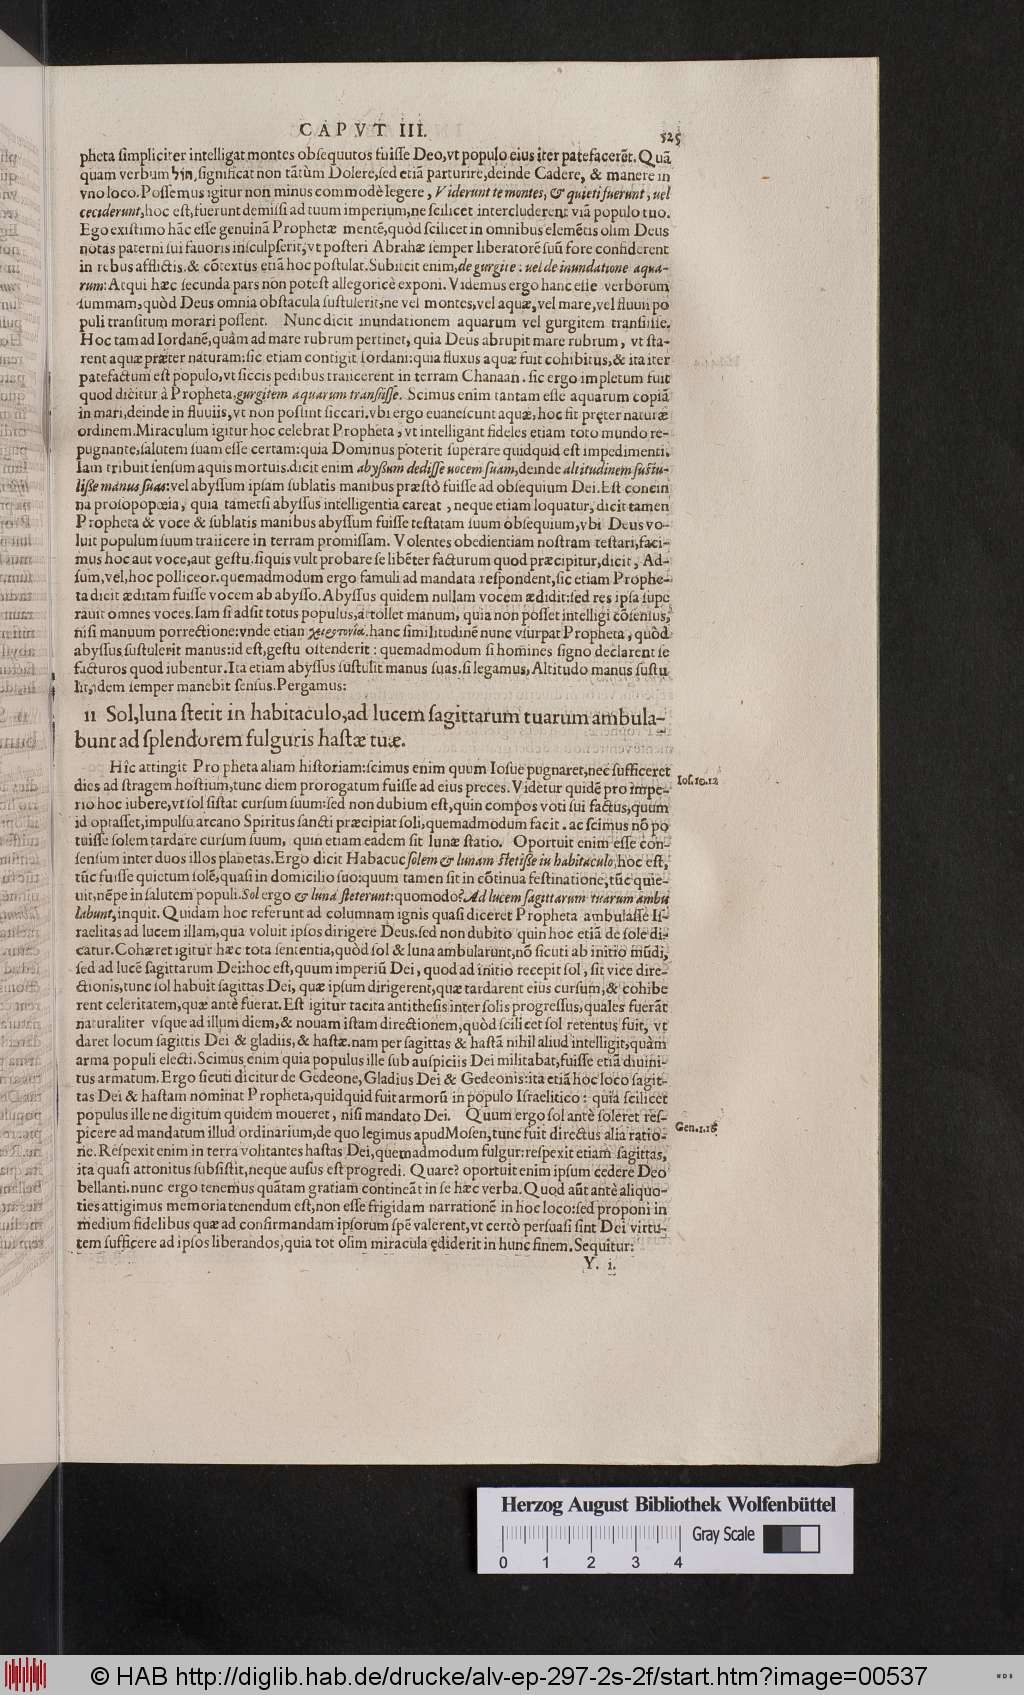 CAPVT III.
525
pheta simpliciter intelligat montes obsequutos fuisse Deo,vt populo eius iter patefacerēt. Quā
quam verbum חול, significat non tātùm Dolere,sed etiā parturire,deinde Cadere, & manere in
vno loco. Possemus igitur non minus commodè legere, Viderunt te montes, & quieti fuerunt, uel
ceciderunt,hoc est,fuerunt demissi ad tuum imperium,ne scilicet intercluderent viā populo tuo.
Ego existimo hāc esse genuinā Prophetæ mentē,quòd scilicet in omnibus elemētis olim Deus
notas paterni sui fauoris insculpserit,vt posteri Abrahæ semper liberatorē suū fore confiderent
in rebus afflictis.& cōtextus etiā hoc postulat.Subiicit enim,de gurgite: uel de inundatione aqua-
rum:Atqui hæc secunda pars non potest allegoricè exponi. Videmus ergo hanc esse verborum
summam,quòd Deus omnia obstacula sustulerit,ne vel montes,vel aquæ,vel mare,vel fluuii po
puli transitum morari possent. Nunc dicit inundationem aquarum vel gurgitem transiisse.
Hoc tam ad Iordanē,quàm ad mare rubrum pertinet, quia Deus abrupit mare rubrum, vt sta-
rent aquæ præter naturam:sic etiam contigit Iordani:quia fluxus aquæ fuit cohibitus,& ita iter
patefactum est populo,vt siccis pedibus traiicerent in terram Chanaan. sic ergo impletum fuit
quod dicitur à Propheta,gurgitem aquarum transiisse. Scimus enim tantam esse aquarum copiā
in mari,deinde in fluuiis,vt non possint siccari.vbi ergo euanescunt aquæ,hoc fit pręter naturæ
ordinem.Miraculum igitur hoc celebrat Propheta, vt intelligant fideles etiam toto mundo re-
pugnante,salutem suam esse certam:quia Dominus poterit superare quidquid est impedimenti.
Iam tribuit sensum aquis mortuis.dicit enim abyssum dedisse uocem suam,deinde altitudinem sustu-
lisse manus suas:vel abyssum ipsam sublatis manibus præstò fuisse ad obsequium Dei.Est concin
na prosopopœia, quia tametsi abyssus intelligentia careat, neque etiam loquatur, dicit tamen
Propheta & voce & sublatis manibus abyssum fuisse testatam suum obsequium,vbi Deus vo-
luit populum suum traiicere in terram promissam. Volentes obedientiam nostram testari,faci-
mus hoc aut voce,aut gestu.siquis vult probare se libēter facturum quod præcipitur,dicit, Ad-
sum,vel,hoc polliceor.quemadmodum ergo famuli ad mandata respondent,sic etiam Prophe-
ta dicit æditam fuisse vocem ab abysso.Abyssus quidem nullam vocem ædidit:sed res ipsa supe
rauit omnes voces.Iam si adsit totus populus,attollet manum, quia non posset intelligi cōsensus,
nisi manuum porrectione:vnde etian χειροτονία.hanc similitudinē nunc vsurpat Propheta, quòd
abyssus sustulerit manus:id est,gestu ostenderit: quemadmodum si homines signo declarent se
facturos quod iubentur.Ita etiam abyssus sustulit manus suas.si legamus, Altitudo manus sustu
lit,idem semper manebit sensus.Pergamus:
11 Sol,luna stetit in habitaculo,ad lucem sagittarum tuarum ambula-
bunt ad splendorem fulguris hastæ tuæ.
Hîc attingit Propheta aliam historiam:scimus enim quum Iosue pugnaret,nec sufficeret
Ios.10.12
dies ad stragem hostium,tunc diem prorogatum fuisse ad eius preces. Videtur quidē pro impe-
rio hoc iubere,vt sol sistat cursum suum:sed non dubium est,quin compos voti sui factus,quum
id optasset,impulsu arcano Spiritus sancti præcipiat soli,quemadmodum facit. ac scimus nō po
tuisse solem tardare cursum suum, quin etiam eadem sit lunæ statio. Oportuit enim esse con-
sensum inter duos illos planetas.Ergo dicit Habacuc solem & lunam stetisse in habitaculo,hoc est,
tūc fuisse quietum solē,quasi in domicilio suo:quum tamen sit in cōtinua festinatione,tūc quie-
uit,nēpe in salutem populi.Sol ergo & luna steterunt:quomodo? Ad lucem sagittarum tuarum ambu
labunt,inquit. Quidam hoc referunt ad columnam ignis quasi diceret Propheta ambulasse Is-
raelitas ad lucem illam,qua voluit ipsos dirigere Deus.sed non dubito quin hoc etiā de sole di-
catur.Cohæret igitur hæc tota sententia,quòd sol & luna ambularunt,nō sicuti ab initio mūdi,
sed ad lucē sagittarum Dei:hoc est,quum imperiū Dei, quod ad initio recepit sol, sit vice dire-
ctionis,tunc sol habuit sagittas Dei, quæ ipsum dirigerent,quæ tardarent eius cursum,& cohibe
rent celeritatem,quæ antè fuerat.Est igitur tacita antithesis inter solis progressus,quales fuerāt
naturaliter vsque ad illum diem,& nouam istam directionem,quòd scilicet sol retentus fuit, vt
daret locum sagittis Dei & gladiis,& hastæ.nam per sagittas & hastā nihil aliud intelligit,quàm
arma populi electi.Scimus enim quia populus ille sub auspiciis Dei militabat,fuisse etiā diuini-
tus armatum.Ergo sicuti dicitur de Gedeone,Gladius Dei & Gedeonis:ita etiā hoc loco sagit-
tas Dei & hastam nominat Propheta,quidquid fuit armorū in populo Israelitico: quia scilicet
populus ille ne digitum quidem moueret, nisi mandato Dei. Quum ergo sol antè soleret res-
picere ad mandatum illud ordinarium,de quo legimus apud Mosen,tunc fuit directus alia ratio-
Gen.1.16
ne.Respexit enim in terra volitantes hastas Dei,quemadmodum fulgur:respexit etiam sagittas,
ita quasi attonitus subsistit,neque ausus est progredi. Quare? oportuit enim ipsum cedere Deo
bellanti.nunc ergo tenemus quātam gratiam contineāt in se hæc verba.Quod aūt antè aliquo-
ties attigimus memoria tenendum est,non esse frigidam narrationē in hoc loco:sed proponi in
medium fidelibus quæ ad confirmandam ipsorum spē valerent,vt certò persuasi sint Dei virtu-
tem sufficere ad ipsos liberandos,quia tot olim miracula ędiderit in hunc finem.Sequitur:
Y. i.
Herzog August Bibliothek Wolfenbüttel
Gray Scale
0 1 2 3 4
© HAB http://diglib.hab.de/drucke/alv-ep-297-2s-2f/start.htm?image=00537